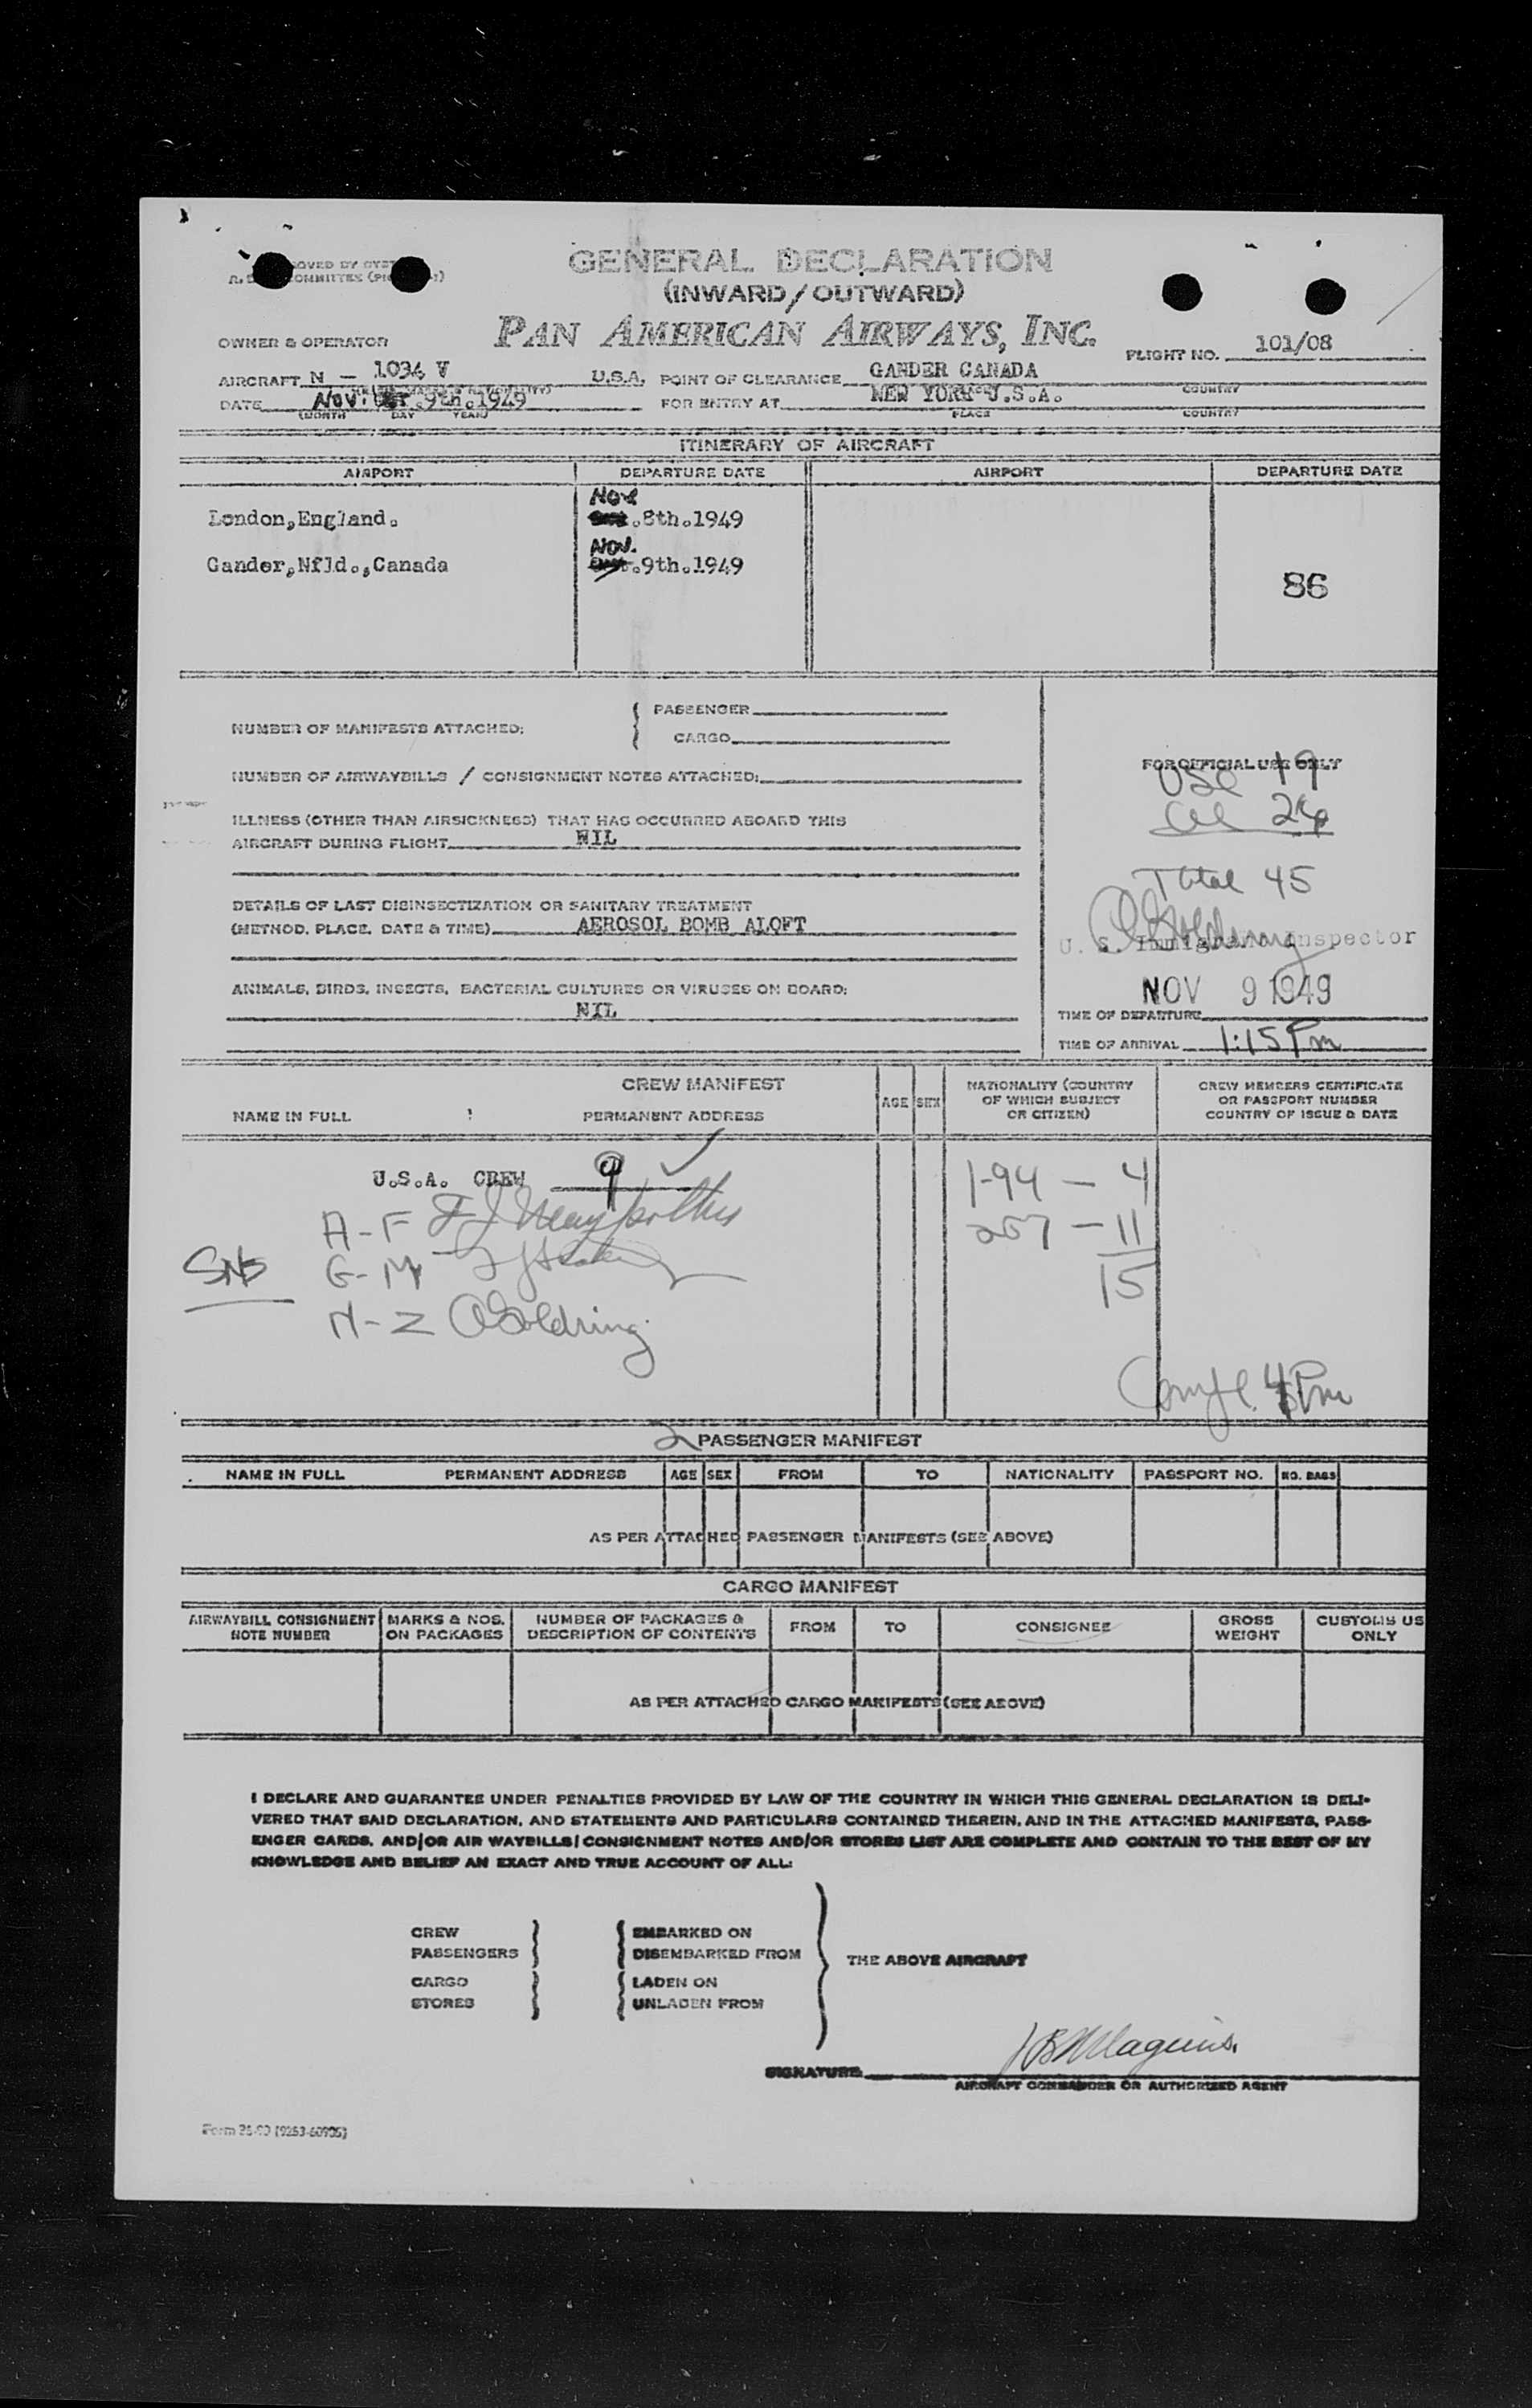 GENERAL DECLARATION
(INWARD/OUTWARD)
PAN AMERICAN AIRWAYS, INC.
OWNER & OPERATOR
FLIGHT NO. 101/08
AIRCRAFT N - 1034 V U.S.A. POINT OF CLEARANCE GANDER CANADA
COUNTRY
DATE Nov. 9th.1949 FOR ENTRY AT NEW YORK U.S.A.
(MONTH DAY YEAR) PLACE COUNTRY
ITINERARY OF AIRCRAFT
AIRPORT DEPARTURE DATE AIRPORT DEPARTURE DATE
Nov
London,England. .8th.1949
Nov.
Gander,Nfld.,Canada .9th.1949
86
NUMBER OF MANIFESTS ATTACHED: { PASSENGER
CARGO
NUMBER OF AIRWAYBILLS / CONSIGNMENT NOTES ATTACHED:
FOR OFFICIAL USE ONLY
USC 19
ILLNESS (OTHER THAN AIRSICKNESS) THAT HAS OCCURRED ABOARD THIS
AIRCRAFT DURING FLIGHT NIL
26
Total 45
DETAILS OF LAST DISINSECTIZATION OR SANITARY TREATMENT
(METHOD, PLACE, DATE & TIME) AEROSOL BOMB ALOFT
U. S. Immigrant Inspector
ANIMALS, BIRDS, INSECTS, BACTERIAL CULTURES OR VIRUSES ON BOARD:
NIL
NOV 9 1949
TIME OF DEPARTURE
TIME OF ARRIVAL 1:15 Pm
CREW MANIFEST
NAME IN FULL PERMANENT ADDRESS AGE SEX NATIONALITY (COUNTRY OF WHICH SUBJECT OR CITIZEN) CREW MEMBERS CERTIFICATE OR PASSPORT NUMBER COUNTRY OF ISSUE & DATE
U.S.A. CREW 9 ✓
1-94 - 4
A-F
257 - 11
SNS G-M
15
N-Z Goldring
Compl. 4 Pm
2 PASSENGER MANIFEST
NAME IN FULL PERMANENT ADDRESS AGE SEX FROM TO NATIONALITY PASSPORT NO. NO. BAGS
AS PER ATTACHED PASSENGER MANIFESTS (SEE ABOVE)
CARGO MANIFEST
AIRWAYBILL CONSIGNMENT NOTE NUMBER MARKS & NOS. ON PACKAGES NUMBER OF PACKAGES & DESCRIPTION OF CONTENTS FROM TO CONSIGNEE GROSS WEIGHT CUSTOMS US ONLY
AS PER ATTACHED CARGO MANIFESTS (SEE ABOVE)
I DECLARE AND GUARANTEE UNDER PENALTIES PROVIDED BY LAW OF THE COUNTRY IN WHICH THIS GENERAL DECLARATION IS DELI-
VERED THAT SAID DECLARATION, AND STATEMENTS AND PARTICULARS CONTAINED THEREIN, AND IN THE ATTACHED MANIFESTS, PASS-
ENGER CARDS, AND/OR AIR WAYBILLS/CONSIGNMENT NOTES AND/OR STORES LIST ARE COMPLETE AND CONTAIN TO THE BEST OF MY
KNOWLEDGE AND BELIEF AN EXACT AND TRUE ACCOUNT OF ALL:
CREW EMBARKED ON
PASSENGERS DISEMBARKED FROM
THE ABOVE AIRCRAFT
CARGO LADEN ON
STORES UNLADEN FROM
SIGNATURE
AIRCRAFT COMMANDER OR AUTHORIZED AGENT